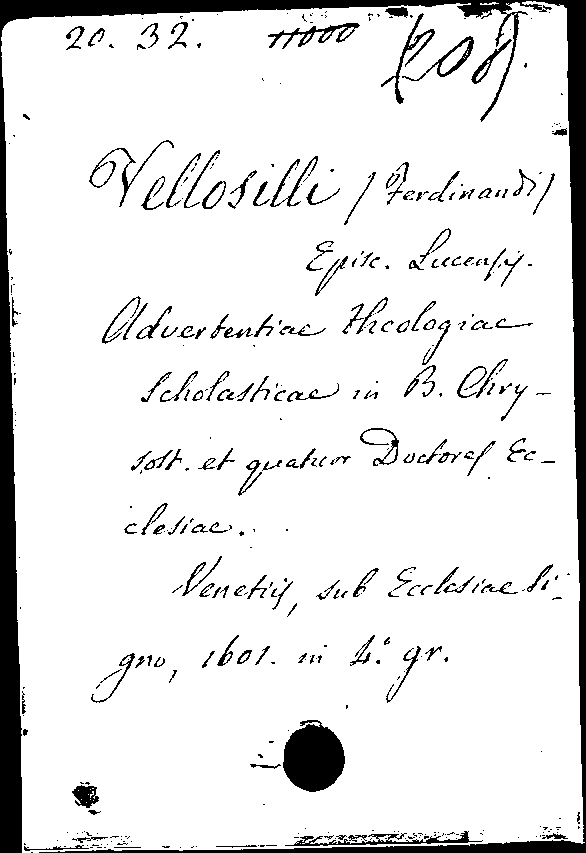 20. 32. 11000 (208).
Vellosilli / Ferdinandi /
Episc. Lucensis.
Advertentiae theologiae
scholasticae in B. Chry-
sost. et quatuor Doctores Ec-
clesiae.
Venetiis, sub Ecclesiae Si-
gno, 1601. in 4.° gr.